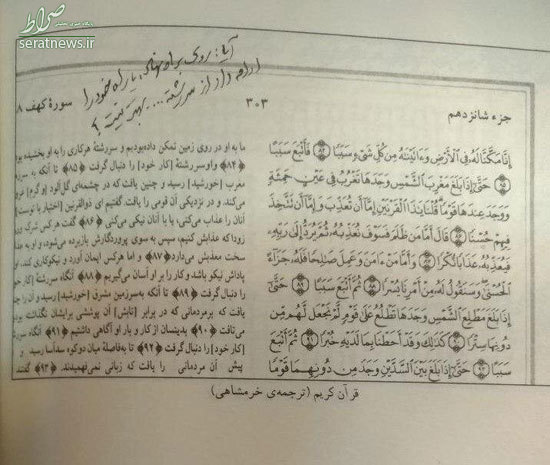 صراط
seratnews.ir
ادامه داد از سررشته .... بهتر نیست؟
جزء شانزدهم
۳۰۳
سورۀ کهف ۱۸
إِنَّا مَكَّنَّا لَهُ فِي الْأَرْضِ وَءَاتَيْنَٰهُ مِن كُلِّ شَيْءٍ سَبَبًا ﴿٨٤﴾ فَأَتْبَعَ سَبَبًا
﴿٨٥﴾ حَتَّىٰ إِذَا بَلَغَ مَغْرِبَ الشَّمْسِ وَجَدَهَا تَغْرُبُ فِي عَيْنٍ حَمِئَةٍ
وَوَجَدَ عِندَهَا قَوْمًا قُلْنَا يَٰذَا الْقَرْنَيْنِ إِمَّا أَن تُعَذِّبَ وَإِمَّا أَن تَتَّخِذَ
فِيهِمْ حُسْنًا ﴿٨٦﴾ قَالَ أَمَّا مَن ظَلَمَ فَسَوْفَ نُعَذِّبُهُ ثُمَّ يُرَدُّ إِلَىٰ رَبِّهِ
فَيُعَذِّبُهُ عَذَابًا نُّكْرًا ﴿٨٧﴾ وَأَمَّا مَنْ ءَامَنَ وَعَمِلَ صَٰلِحًا فَلَهُ جَزَاءً
الْحُسْنَىٰ وَسَنَقُولُ لَهُ مِنْ أَمْرِنَا يُسْرًا ﴿٨٨﴾ ثُمَّ أَتْبَعَ سَبَبًا ﴿٨٩﴾ حَتَّىٰ
إِذَا بَلَغَ مَطْلِعَ الشَّمْسِ وَجَدَهَا تَطْلُعُ عَلَىٰ قَوْمٍ لَّمْ نَجْعَل لَّهُم مِّن
دُونِهَا سِتْرًا ﴿٩٠﴾ كَذَٰلِكَ وَقَدْ أَحَطْنَا بِمَا لَدَيْهِ خُبْرًا ﴿٩١﴾ ثُمَّ أَتْبَعَ
سَبَبًا ﴿٩٢﴾ حَتَّىٰ إِذَا بَلَغَ بَيْنَ السَّدَّيْنِ وَجَدَ مِن دُونِهِمَا قَوْمًا
ما به او در روی زمین تمکن داده‌بودیم و سررشتۀ هرکاری را به او بخشیده بود
﴿۸۴﴾ و او سررشتۀ [کار خود] را دنبال گرفت ﴿۸۵﴾ تا آنگاه به سرزمین
مغرب [خورشید] رسید و چنین یافت که در چشمه‌ای گل‌آلود [و گرم] غروب
می‌کند و در نزدیکی آن قومی را یافت گفتیم ای ذوالقرنین [اختیار با توست]
آنان را عذاب می‌کنی، یا با آنان نیکی می‌کنی ﴿۸۶﴾ گفت هرکس شرک
زودا که عذابش کنیم، سپس به سوی پروردگارش بازبرده می‌شود، و او به عذابی
سخت معذبش می‌دارد ﴿۸۷﴾ و اما هرکس ایمان آورد و نیکوکاری کند،
پاداش نیکو باشد و کار را بر او آسان می‌گیریم ﴿۸۸﴾ آنگاه سررشتۀ [کار خود]
را دنبال گرفت ﴿۸۹﴾ تا آنکه به‌سرزمین مشرق [خورشید] رسید و آن را
یافت که برمردمانی که در برابر [تابش] آن پوششی برایشان نگذاشته بودیم
می‌تافت ﴿۹۰﴾ بدینسان از کار و بار او آگاهی داشتیم ﴿۹۱﴾ آنگاه سررشتۀ
[کار خود] را دنبال گرفت ﴿۹۲﴾ تا به‌فاصلۀ میان دو کوه سدآسا رسید و
پیش آن مردمانی را یافت که زبانی نمی‌فهمیدند. ﴿۹۳﴾ گفتند
قرآن کریم (ترجمه‌ی خرمشاهی)